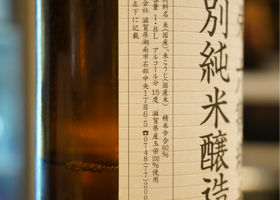 別純米醸造
原材料名 米(国産)、米こうじ(国産米) 精米歩合60%
容量 1.8L アルコール分 15度 滋賀県産玉栄100%使用
滋賀県湖南市石部中央1丁目6-5 ☎0748(77)200
左下に記載